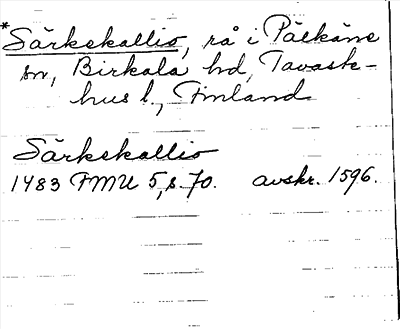 *Särkekallio, rå i Pälkäne
sn, Birkala hd, Tavaste-
hus l., Finland
Särkekallio
1483 FMU 5, s. 70. avskr. 1596.